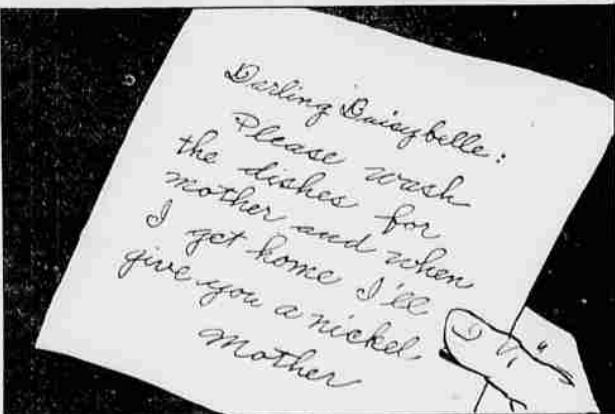 Darling Daisybelle:
Please wash
the dishes for
mother and when
I get home I'll
give you a nickel.
Mother